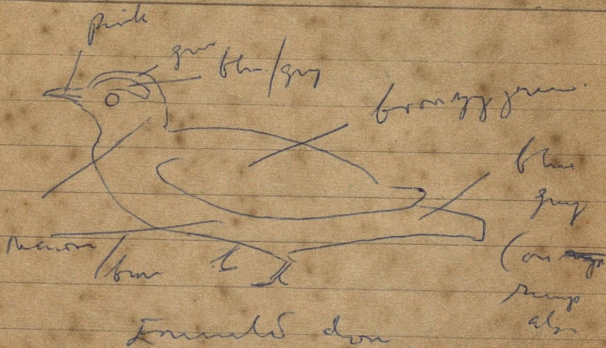 pink
grey
blue/grey
bronzy green
blue
grey
(on
rump
also
maroon
/brown
Emerald dove